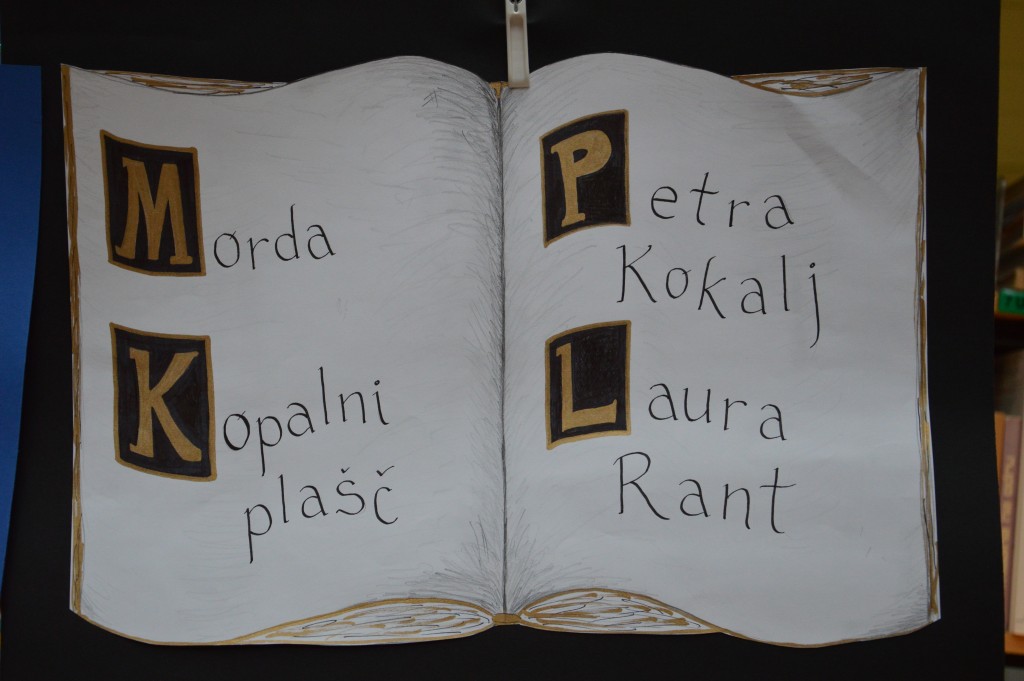 Morda
Kopalni
plašč
Petra
Kokalj
Laura
Rant